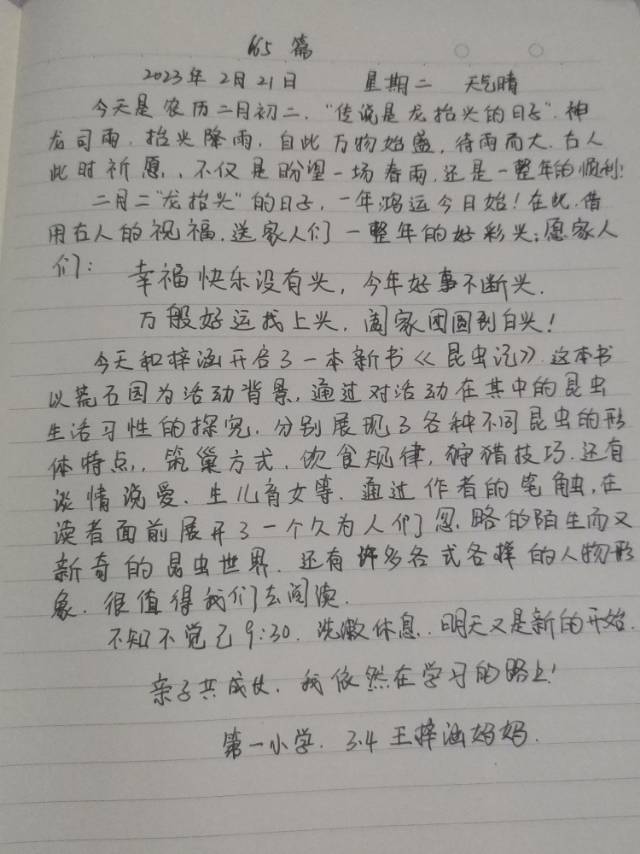 165篇
2023年2月21日 星期二 天气晴
今天是农历二月初二，“传说是龙抬头的日子”，神
龙司雨，抬头降雨，自此万物始盛，待雨而大，古人
此时祈愿，不仅是盼望一场春雨，还是一整年的顺利！
二月二“龙抬头”的日子，一年鸿运今日始！在此，借
用古人的祝福，送家人们一整年的好彩头；愿家人
们：
幸福快乐没有头，今年好事不断头.
万般好运找上头，阖家团圆到白头！
今天和梓涵开启了一本新书《昆虫记》.这本书
以荒石园为活动背景，通过对活动在其中的昆虫
生活习性的探究，分别展现了各种不同昆虫的形
体特点，筑巢方式，饮食规律，狩猎技巧.还有
谈情说爱、生儿育女等.通过作者的笔触，在
读者面前展开了一个久为人们忽略的陌生而又
新奇的昆虫世界.还有许多各式各样的人物形
象.很值得我们去阅读.
不知不觉已9:30.洗漱休息.明天又是新的开始.
亲子共成长，我依然在学习的路上！
第一小学.3.4王梓涵妈妈.